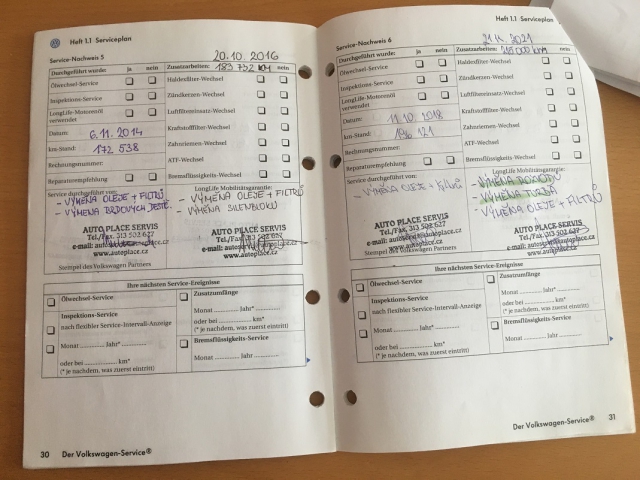 Heft 1.1 Serviceplan
Service-Nachweis 5
20.10.2016
Durchgeführt wurde: ja nein
Zusatzarbeiten: 183 752 KM nein
Ölwechsel-Service
Haldexfilter-Wechsel
Inspektions-Service
Zündkerzen-Wechsel
LongLife-Motorenöl verwendet
Luftfiltereinsatz-Wechsel
Datum: 6.11.2014
Kraftstofffilter-Wechsel
km-Stand: 172 538
Zahnriemen-Wechsel
Rechnungsnummer:
ATF-Wechsel
Reparaturempfehlung
Bremsflüssigkeits-Wechsel
Service durchgeführt von:
LongLife Mobilitätsgarantie:
- VÝMĚNA OLEJE + FILTRŮ
- VÝMĚNA OLEJE + FILTRŮ
- VÝMĚNA BRZDOVÝCH
- VÝMĚNA SILENBLOKU
AUTO PLACE SERVIS
Tel./Fax. 313 502 627
e-mail: autoservis@autoplace.cz
www.autoplace.cz
AUTO PLACE SERVIS
Tel./Fax. 313 502 627
e-mail: autoservis@autoplace.cz
www.autoplace.cz
Stempel des Volkswagen Partners
Ihre nächsten Service-Ereignisse
Ölwechsel-Service
Zusatzumfänge
Inspektions-Service
Monat ............ Jahr*............
nach flexibler Service-Intervall-Anzeige
oder bei ............ km*
Monat ............ Jahr*............
(* je nachdem, was zuerst eintritt)
oder bei ............ km*
Bremsflüssigkeits-Service
(* je nachdem, was zuerst eintritt)
Monat ............ Jahr ............
30 Der Volkswagen-Service®
Heft 1.1 Serviceplan
Service-Nachweis 6
2021
Durchgeführt wurde: ja nein
Zusatzarbeiten: 000 km nein
Ölwechsel-Service
Haldexfilter-Wechsel
Inspektions-Service
Zündkerzen-Wechsel
LongLife-Motorenöl verwendet
Luftfiltereinsatz-Wechsel
Datum: 11.10.2018
Kraftstofffilter-Wechsel
km-Stand: 196 121
Zahnriemen-Wechsel
Rechnungsnummer:
ATF-Wechsel
Reparaturempfehlung
Bremsflüssigkeits-Wechsel
Service durchgeführt von:
LongLife Mobilitätsgarantie:
- VÝMĚNA OLEJE + FILTRŮ
- VÝMĚNA ROZVODU
- VÝMĚNA TURBA
- VÝMĚNA OLEJE + FILTRŮ
AUTO PLACE SERVIS
Tel./Fax. 313 502 627
e-mail: autoservis@autoplace.cz
www.autoplace.cz
AUTO PLACE SERVIS
Tel./Fax. 313 502 627
e-mail: autoservis@autoplace.cz
www.autoplace.cz
Stempel des Volkswagen Partners
Ihre nächsten Service-Ereignisse
Ölwechsel-Service
Zusatzumfänge
Inspektions-Service
Monat ............ Jahr*............
nach flexibler Service-Intervall-Anzeige
oder bei ............ km*
Monat ............ Jahr*............
(* je nachdem, was zuerst eintritt)
oder bei ............ km*
Bremsflüssigkeits-Service
(* je nachdem, was zuerst eintritt)
Monat ............ Jahr ............
Der Volkswagen-Service® 31